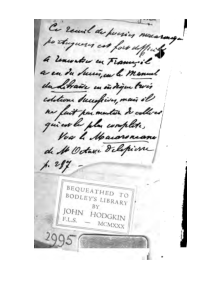 Ce recueil de poésies macaroniques
portugaises est fort difficile
à rencontrer en France, il
a eu du succès, car le Manuel
du Libraire en indique trois
éditions successives, mais il
ne fait pas mention de celle-ci
qui est la plus complète.
Voir le Macaroneana
de Mr Octave Delepierre
p. 287.
BEQUEATHED TO
BODLEY'S LIBRARY
BY
JOHN HODGKIN
F.L.S. — MCMXXX
2995